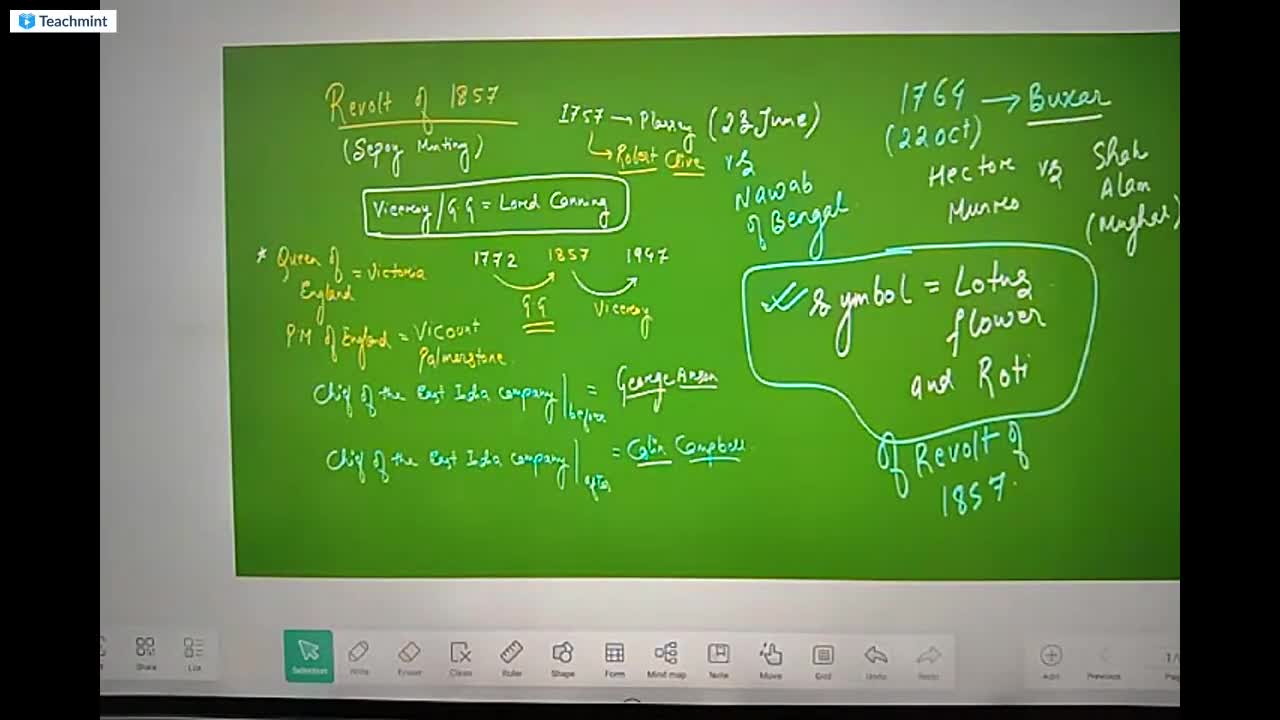 Teachmint
Revolt of 1857
(Sepoy Munting)
Viceroy / G G = Lored Canning
1757 → Plassey (23 June)
Robert Clive vs
Nawab
of Bengal
1764 → Buxar
(22 Oct)
Hectore vs Shah
Munro Alam
(Mughal)
* Queen of = Victoria
England
1772 1857 1947
G G Viceroy
PM of England = Vicount
Palmerstone
Chief of the East India Company before = George Anson
Chief of the East India Company after = Colin Campbell
Symbol = Lotus
flower
and Roti
of Revolt of
1857.
Share
List
Selection
Write
Eraser
Clean
Ruler
Shape
Form
Mind map
Note
Move
Grid
Undo
Redo
Add
Previous